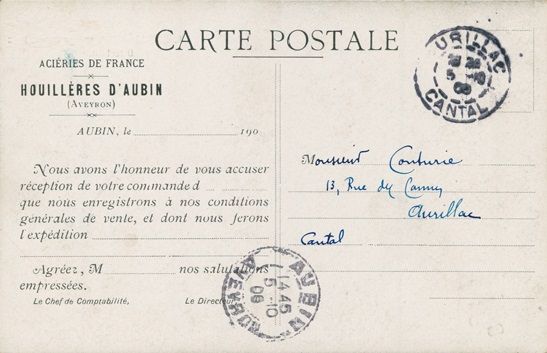 CARTE POSTALE
ACIÉRIES DE FRANCE
HOUILLÈRES D'AUBIN
(AVEYRON)
AUBIN, le 190
Nous avons l'honneur de vous accuser
réception de votre commande d
que nous enregistrons à nos conditions
générales de vente, et dont nous ferons
l'expédition
Agréez, M nos salutations
empressées.
Le Chef de Comptabilité, Le Directeur
Monsieur Couturie
13, Rue du
Aurillac
Cantal
URILLAC
CANTAL
AUBIN
14 45
5 - 10
08
AVEYRON